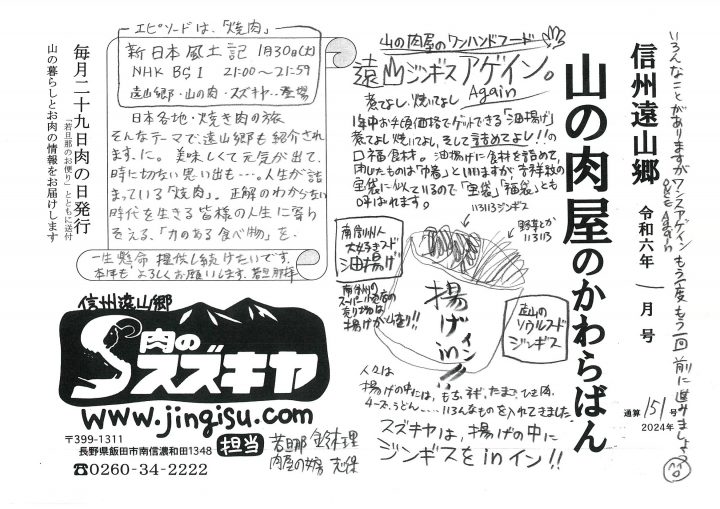 いろんなことがありますがワンスアゲイン もう一度 もう一回 前に進みましょう
ONCE Again
信州遠山郷 令和六年 一月号
通算 151号
2024年
山の肉屋のかわらばん
山の肉屋のワンハンドフード
遠山ジンギスアゲイン。
Again
煮てよし、焼いてよし
1年中お手頃価格でゲットできる「油揚げ」
煮てよし 焼いてよし、そして詰めてよし!!の
口福食材。油揚げに食材を詰めて、
閉じたものは「巾着」といいますが、吉祥紋の
宝袋に似ているので「宝袋」「福袋」とも
呼ばれます。
いろいろジンギス
野菜とか
いろいろ
南信州人
大好きフード
油揚げ
南信州の
スーパー
売り場は
揚げがいっぱい!!
揚げin
イン!!
遠山の
ソウルフード
ジンギス
人々は
揚げの中には、もち、ネギ、たまご、ひき肉、
チーズ、うどん……いろんなものを入れてきました
スズキヤは、揚げの中に
ジンギスをinイン!!
エピソードは、「焼肉」
新日本風土記 1月30日(火)
NHK BS1 21:00〜21:59
遠山郷・山の肉・スズキヤ…登場
日本各地・焼き肉の旅
そんなテーマで、遠山郷も紹介され
ます。に。美味しくて元気が出て、
時に切ない思い出も…。人生が詰
まっている「焼肉」。正解のわからない
時代を生きる皆様の人生に寄り
そえる、「力のある食べ物」を、
一生懸命 提供し続けたいです。
本年も よろしくお願いします。若旦那
毎月二十九日肉の日発行
「若旦那のお便り」とともに送付
山の暮らしとお肉の情報をお届けします
信州遠山郷
肉の
スズキヤ
www.jingisu.com
〒399-1311
長野県飯田市南信濃和田1348
☎0260-34-2222
担当
若旦那 鈴木理
肉屋の女房 志保